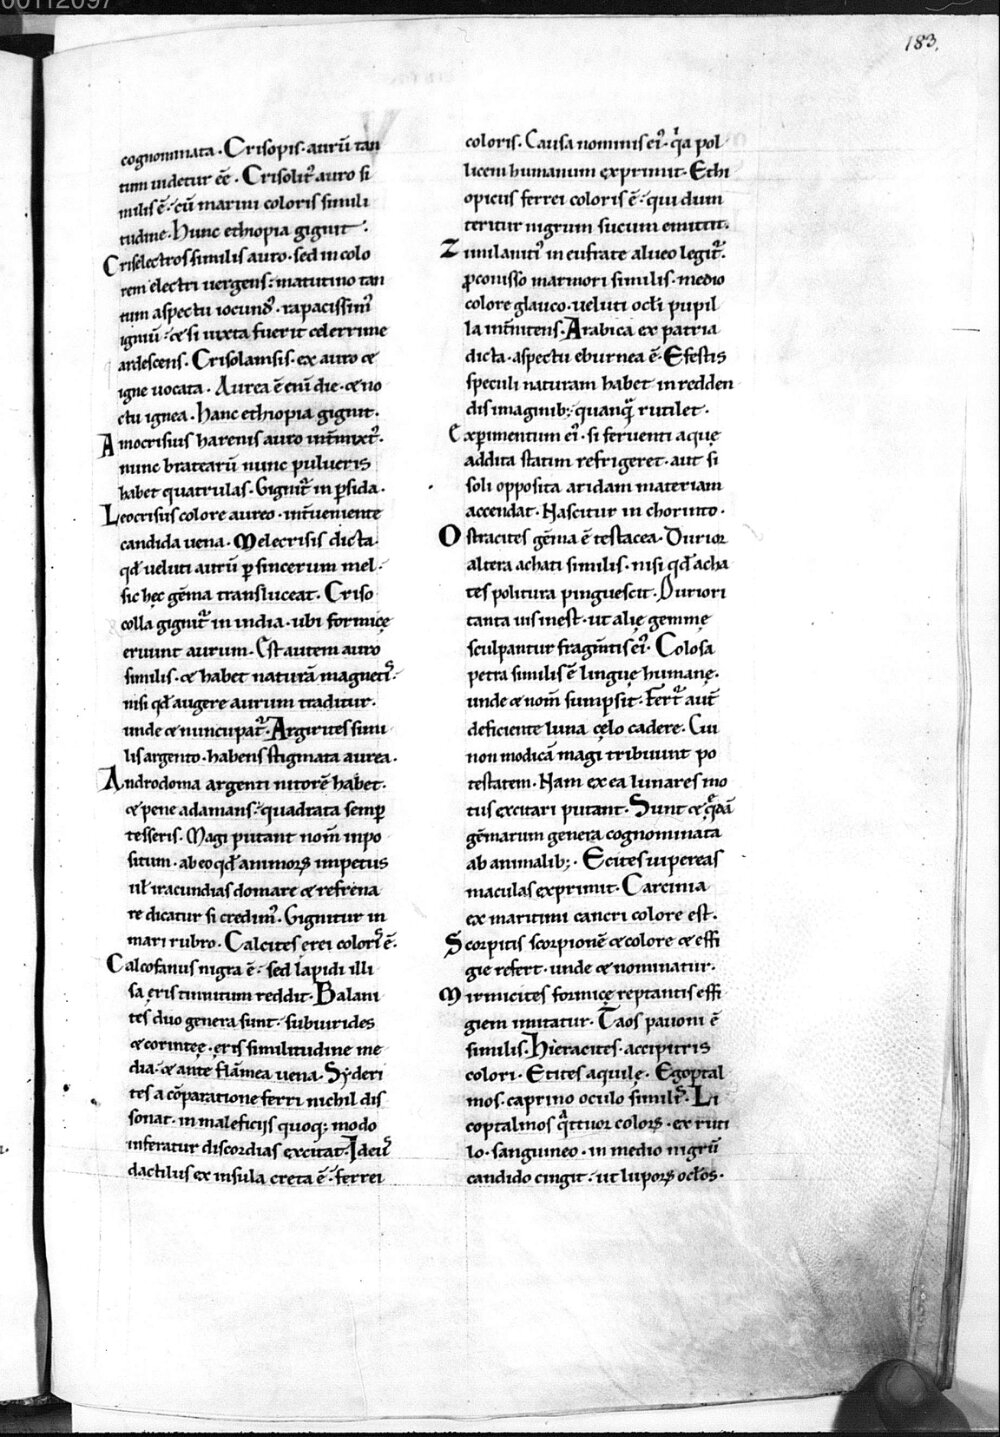 00112097
183.
cognominata. Crisopis. aurū tan
tum uidetur ēē. Crisolit᷒ auro si
milis ē. cū marini coloris simili
tudine. Hunc ethiopia gignit.
Criselectros similis auro. sed in colo
rem electri uergens: matutino tan
tum aspectu iocund᷒. rapacissim᷒
igniū. & si iuxta fuerit celerrime
ardescens. Crisolansis. ex auro &
igne uocata. Aurea ē eni die. & no
ctu ignea. Hanc ethiopia gignit.
Amocrisus harenis auro int̄mixt᷒.
nunc bratearū nunc pulueris
habet quatrulas. Gignit᷑ in ꝑsida.
Leocrisus colore aureo. int̄ueniente
candida uena. Melecrisis dicta
qđ ueluti aurū ꝑ sincerum mel.
sic hęc gēma transluceat. Criso
colla gignit᷑ in india. ubi formicę
eruunt aurum. Est autem auro
similis. & habet naturā magneti᷒.
nisi qđ augere aurum traditur.
unde & nuncupat᷑. Argirites simi
lis argento. habens stigmata aurea.
Androdoma argenti nitorē habet.
& pene adamans. quadrata semꝑ
tesseris. Magi putant nom̄ inpo
situm. ab eo qđ animoꝝ impetus
uł iracundias domare & refrena
re dicatur si credim᷒. Gignitur in
mari rubro. Calcites ęrei colori᷒ ē.
Calcofanus nigra ē. sed lapidi illi
sa ęris tinnitum reddit. Balani
tes duo genera sunt. subuirides
& corinteę. ęris similitudine me
dia. & ante flāmea uena. Syderi
tes a cōparatione ferri nichil dis
sonat. in maleficijs quoq; modo
inferatur discordias excitat. Ideu᷒
dactilus ex insula creta ē. ferrei
coloris. Causa nominis ei᷒. qͥa pol
licem humanum exprimit. Ethi
opicus ferrei coloris ē. qui dum
teritur nigrum sucum emittit.
Zmilanit᷒ in eufrate alueo legit᷑.
ꝓconisso marmori similis. medio
colore glauco. ueluti ocłi pupil
la int̄nitens. Arabica ex patria
dicta. aspectu eburnea ē. Efestis
speculi naturam habet in redden
dis imaginib;. quanqͣ rutilet.
Exꝑimentum ei᷒. si feruenti aquę
addita statim refrigeret. aut si
soli opposita aridam materiam
accendat. Nascitur in chorinto.
Ostracites gēma ē testacea. Durior
altera achati similis. nisi qđ acha
tes politura pinguescit. Duriori
tanta uis inest. ut alię gemmę
sculpantur fragm̄tis ei᷒. Colosa
petra similis ē linguę humanę.
unde & nom̄ sumpsit. Fert᷑ aut̄
deficiente luna cęlo cadere. Cui
non modicā magi tribuunt po
testatem. Nam ex ea lunares mo
tus excitari putant. Sunt & qͥdā
gēmarum genera cognominata
ab animalib;. Ecites uipereas
maculas exprimit. Carcinia
ex maritimi cancri colore est.
Scorpitis scorpionē & colore & effi
gie refert. unde & nominatur.
Mirmicites formicę reptantis effi
giem imitatur. Taos pauoni ē
similis. Hieracites. accipitris
colori. Etites aquilę. Egoptal
mos. caprino oculo simili᷒. Li
coptalmos qͣttuor coloꝝ. ex ruti
lo. sanguineo. in medio nigrū
candido cingit. ut lupoꝝ ocłos.